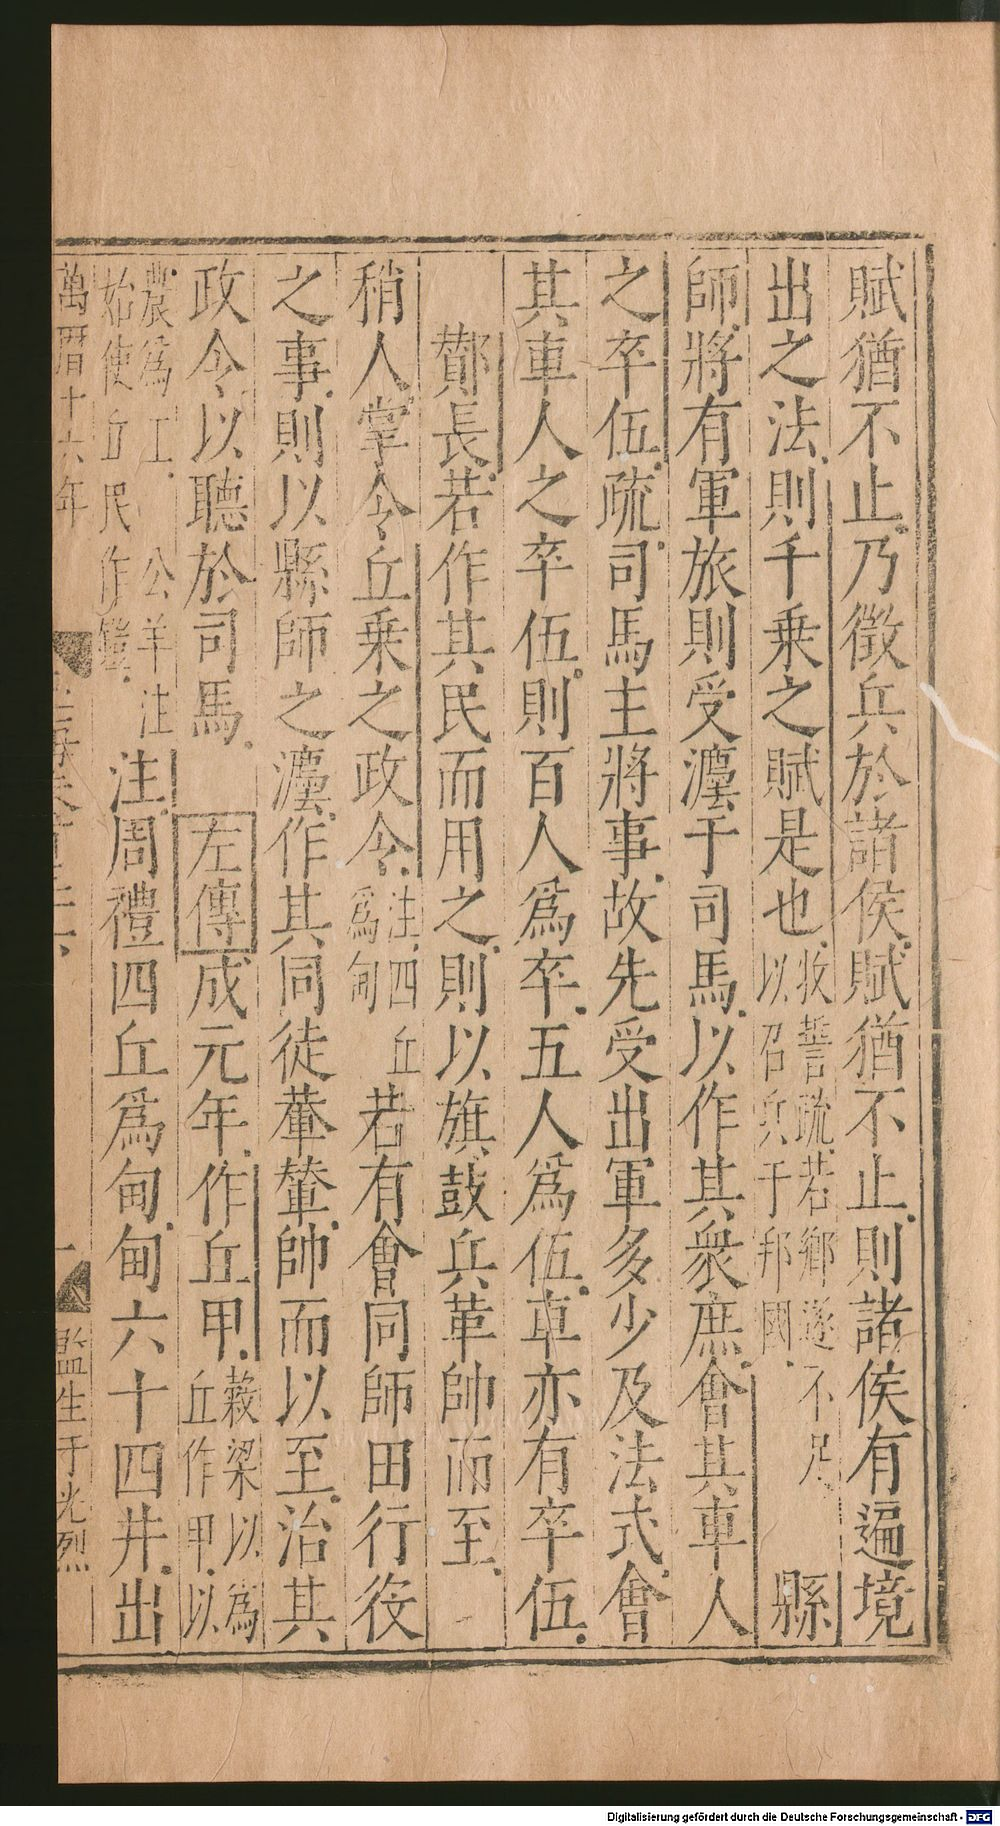 賦猶不止乃徵兵於諸侯賦猶不止則諸侯有遍境
出之法則千乗之賦是也牧誓疏若鄉遂不足以召兵于邦國縣
師將有軍旅則受灋于司馬以作其衆庶會其車人
之卒伍疏司馬主將事故先受出軍多少及法式會
其車人之卒伍則百人爲卒五人爲伍車亦有卒伍
酇長若作其民而用之則以旗鼓兵革帥而至
稍人掌令丘乗之政令注四丘爲甸若有會同師田行役
之事則以縣師之灋作其同徒輂輦帥而以至治其
政令以聽於司馬左傳成元年作丘甲穀梁以爲丘作甲以
農爲工公羊注始使丘民作鎧注周禮四丘爲甸甸六十四井出
萬曆十六年
一
監生于光烈
Digitalisierung gefördert durch die Deutsche Forschungsgemeinschaft - DFG